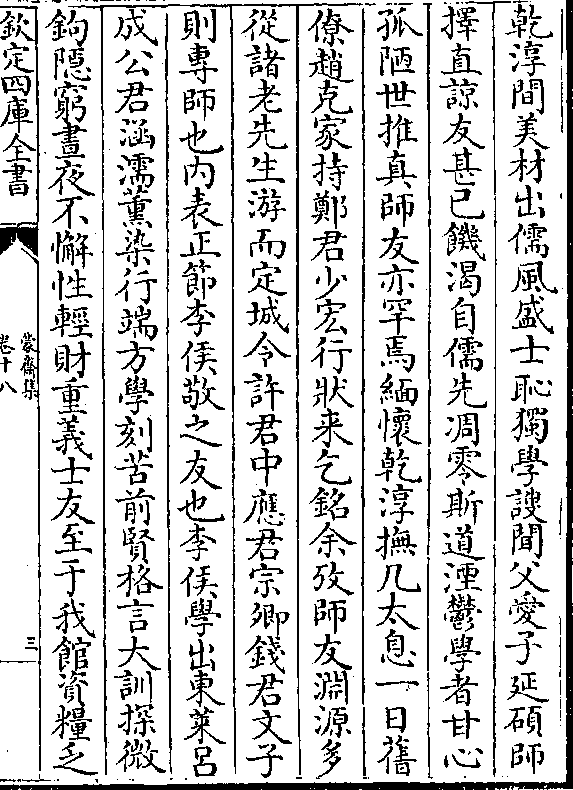 乾淳間美材出儒風盛士恥獨學謏聞父愛子延碩師
擇直諒友甚已饑渴自儒先凋零斯道湮鬱學者甘心
孤陋世推真師友亦罕焉緬懷乾淳撫几太息一日舊
僚趙克家持鄭君少宏行狀来乞銘余攷師友淵源多
從諸老先生游而定城令許君中應君宗卿錢君文子
則專師也内表正節李侯敬之友也李侯學出東萊呂
成公君涵濡薰染行端方學刻苦前賢格言大訓探微
鉤隱窮晝夜不懈性輕財重義士友至于我館資糧乏
欽定四庫全書
蒙齋集
卷十八
三